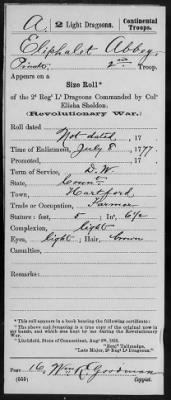 A, 2 Light Dragoons. Continental Troops.
Eliphalet Abbey
Private, 2nd Troop.
Appears on a
Size Roll*
of the 2d Reg't Lt Dragoons Commanded by Col'o
Elisha Sheldon.
(Revolutionary War.)
Roll dated
Not dated, 17
Time of Enlistment, July 8 1777.
Promoted, 17
Term of Service, D.W.
State, Connt
Town, Hartford
Trade or Occupation, Farmer
Stature: feet, 5 ; in., 6½
Complexion, light
Eyes, light ; Hair, brown
Casualties,
Remarks:
*This roll appears in a book bearing the following certificate:
"The above and foregoing is a true copy of the original now in
my hands, and executed by me during the Revolutionary War.
"Litchfield, State of Connecticut, Aug't
"Benj'n Tallmadge,
"Late Major, 2d Reg't Lt Dragoons."
Page 16, Wm R. Goodman
Copyist.